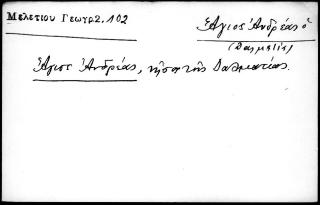 Μελετίου Γεωγρ2.102
Ἅγιος Ἀνδρέας ὁ
(Δαλματίας)
Ἅγιος Ἀνδρέας, νῆσος τῆς Δαλματίας.